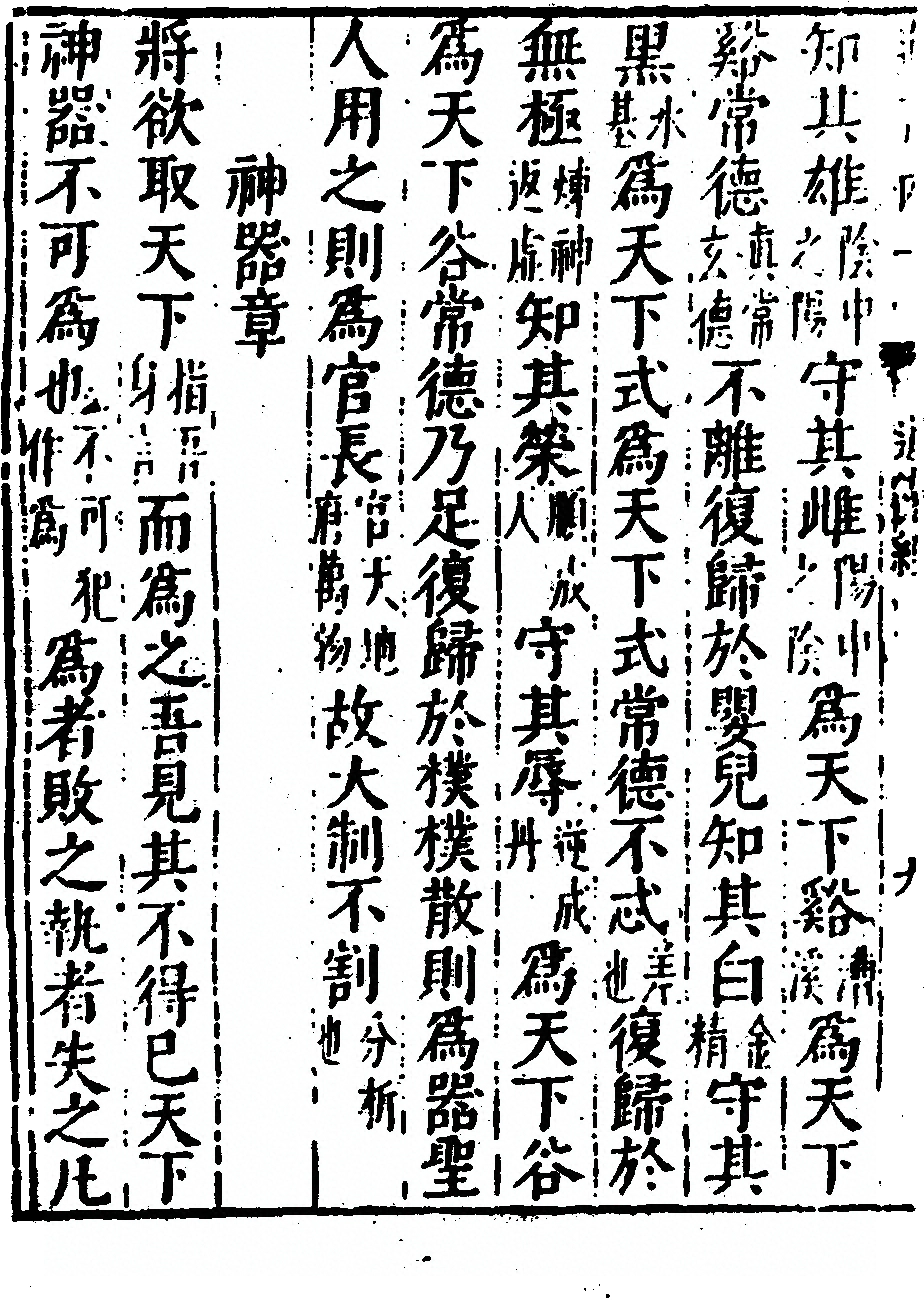 知其雄陰中之陽守其雌陽中之陰為天下谿溝溪為天下
谿常德真常玄德不離復歸於嬰兒知其白金精守其
黑水基為天下式為天下式常德不忒差也復歸於
無極煉神返虛知其榮順成人守其辱逆成丹為天下谷
為天下谷常德乃足復歸於樸樸散則為器聖
人用之則為官長官天地府萬物故大制不割分析也
神器章
將欲取天下指吾身言而為之吾見其不得已天下
神器不可為也不可犯作為為者敗之執者失之凡